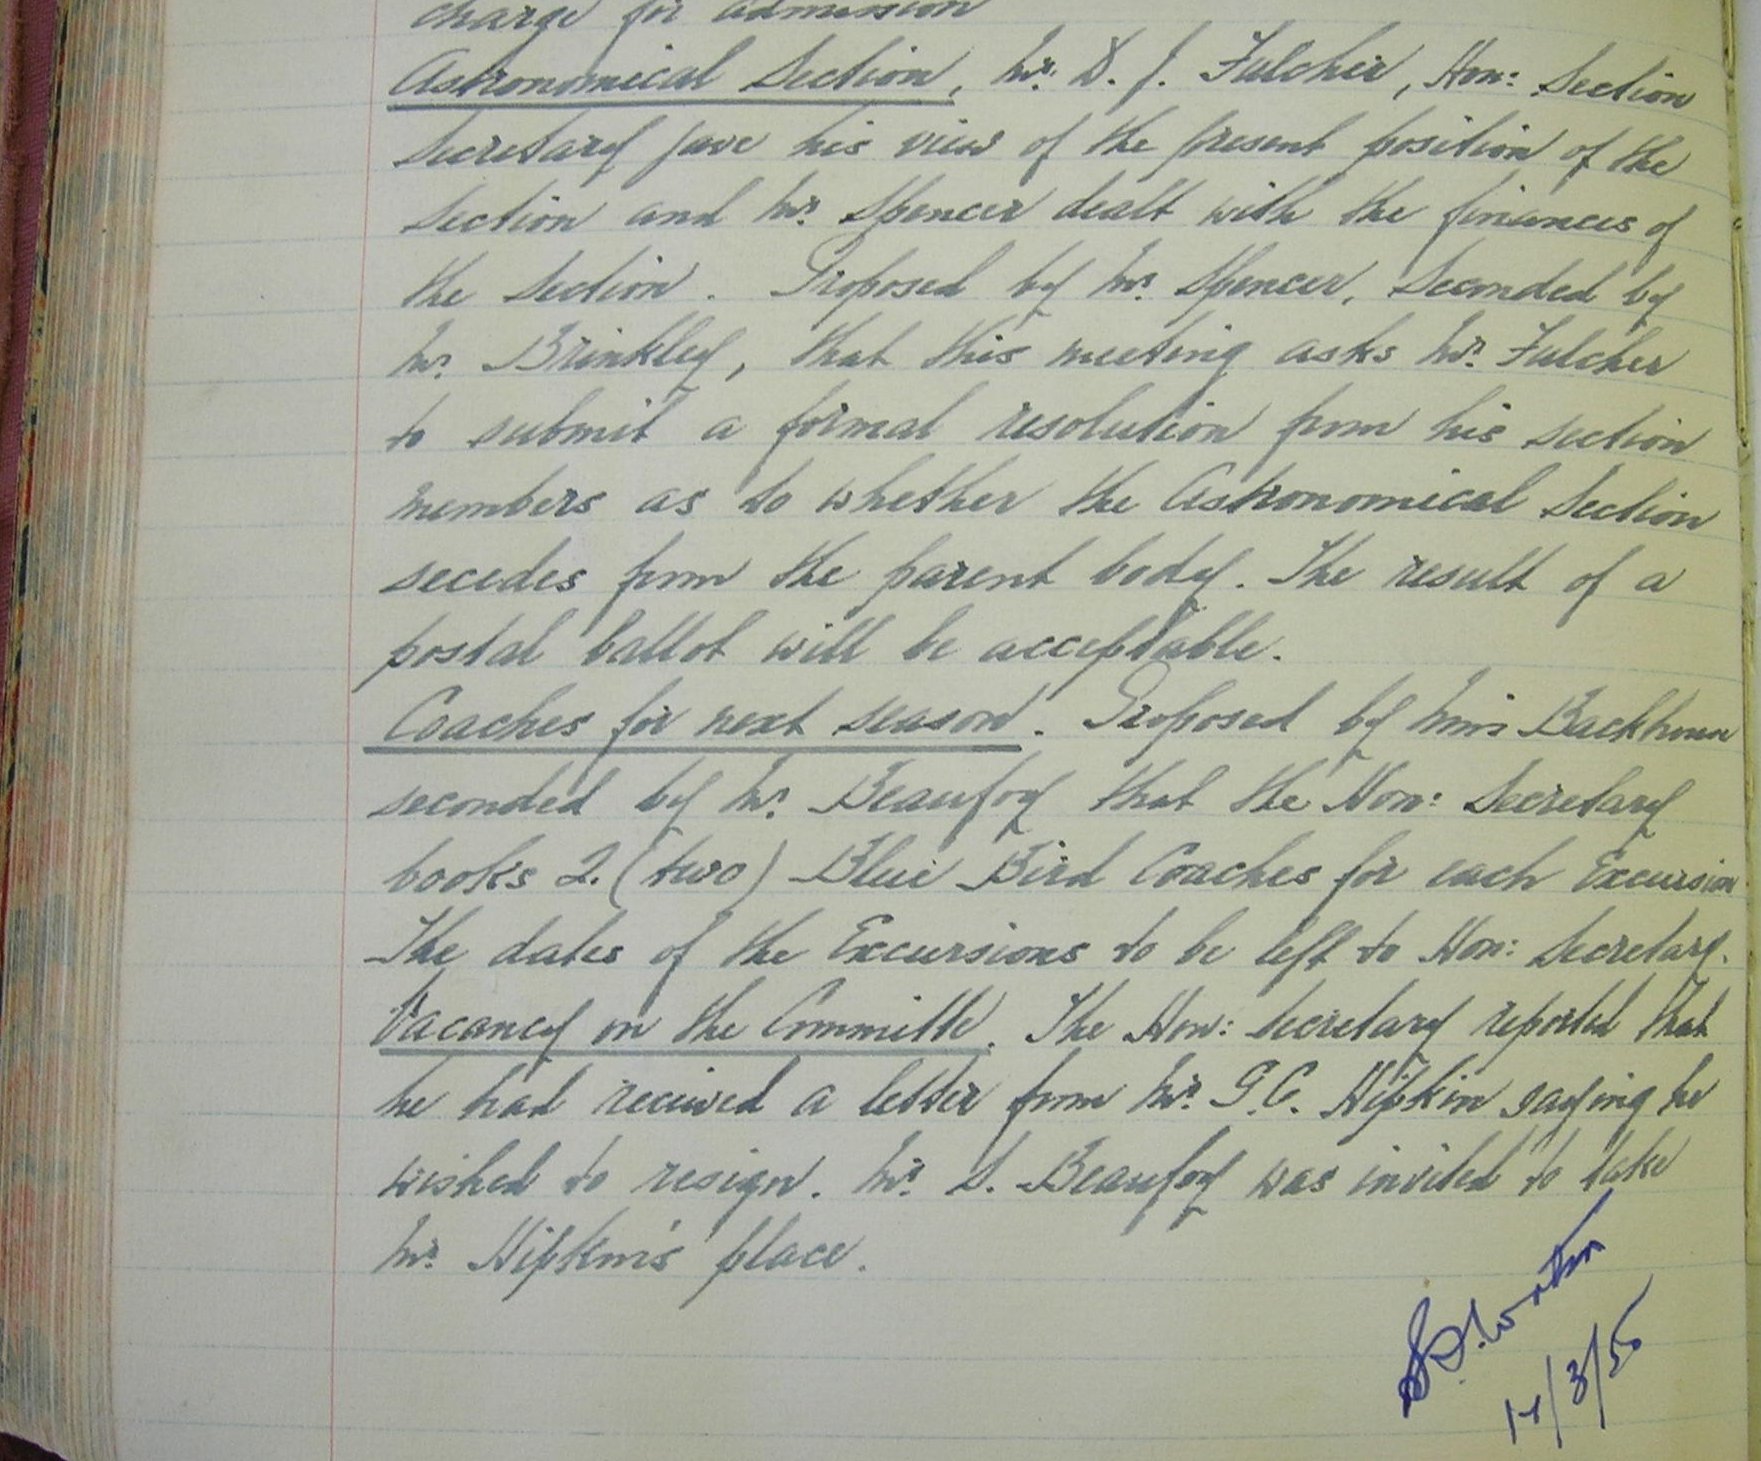 charge for admission
Astronomical Section, Mr. D. J. Fulcher, Hon: Section
Secretary gave his view of the present position of the
section and Mr. Spencer dealt with the finances of
the section. Proposed by Mr. Spencer, seconded by
Mr. Brinkley, that this meeting asks Mr. Fulcher
to submit a formal resolution from his section
members as to whether the Astronomical Section
secedes from the parent body. The result of a
postal ballot will be acceptable.
Coaches for next season. Proposed by Miss Backhouse
seconded by Mr. Beaufoy that the Hon: Secretary
books 2. (two) Blue Bird Coaches for each Excursion
The dates of the Excursions to be left to Hon: Secretary.
Vacancy on the Committe. The Hon: Secretary reported that
he had received a letter from Mr. G.C. Hipkin saying he
wished to resign. Mr. S. Beaufoy was invited to take
Mr. Hipkin's place.